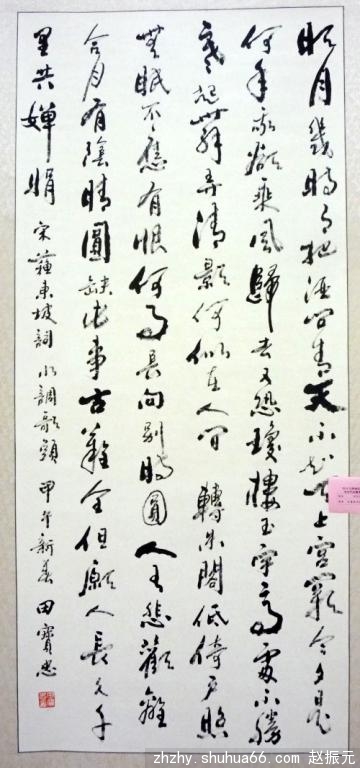 明月幾時有把酒問青天不知天上宮闕今夕是
何年我欲乘風歸去又恐瓊樓玉宇高處不勝
寒起舞弄清影何似在人間轉朱閣低倚戶照
無眠不應有恨何事長向別時圓人有悲歡離
合月有陰晴圓缺此事古難全但願人長久千
里共嬋娟 宋蘇東坡詞水調歌頭 甲午新春 田寶忠
zhzhy.shuhua66.com 赵振元